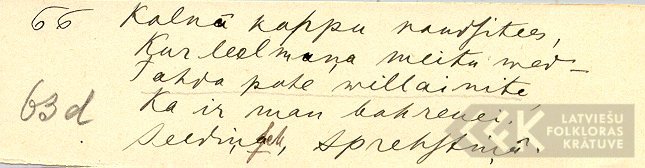 66 Kalnā kappu raudsitees,
Kur leelmaņa meitu wed–
Tahda pate willainite
63d Ka ir man bahrenei.
Seediņ, sprehstiņā.
LATVIEŠU
FOLKLORAS
KRĀTUVE